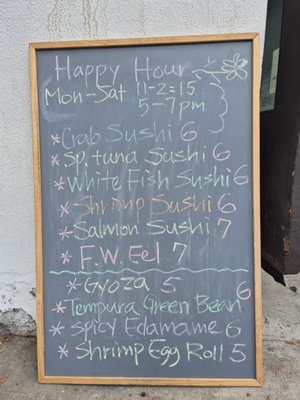 Happy Hour
Mon-Sat 11-2:15
5-7pm
* Crab Sushi 6
* Sp. tuna Sushi 6
* White Fish Sushi 6
* Shrimp Sushi 6
* Salmon Sushi 7
* F.W. Eel 7
* Gyoza 5
* Tempura Green Bean 6
* Spicy Edamame 6
* Shrimp Egg Roll 5